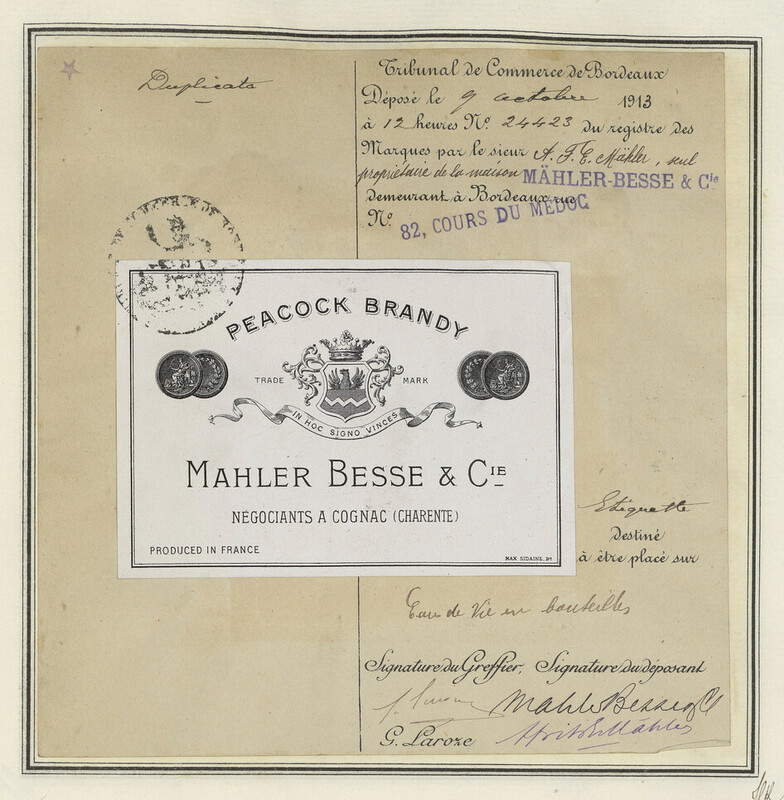 Duplicata
Tribunal de Commerce de Bordeaux
Déposé le 9 octobre 1913
à 12 heures No. 24423 du registre des
Marques par le sieur A. F. E. Mähler, seul
propriétaire de la maison MÄHLER-BESSE & Cie
demeurant à Bordeaux rue
No. 82, COURS DU MÉDOC
PEACOCK BRANDY
TRADE MARK
IN HOC SIGNO VINCES
MAHLER BESSE & CIE
NÉGOCIANTS A COGNAC (CHARENTE)
PRODUCED IN FRANCE
MAX SIDAINE. Bx
Etiquette
Destiné
à être placé sur
Eau de Vie en bouteilles
Signature du Greffier, Signature du déposant
Mahler Besse & Cie
G. Laroze